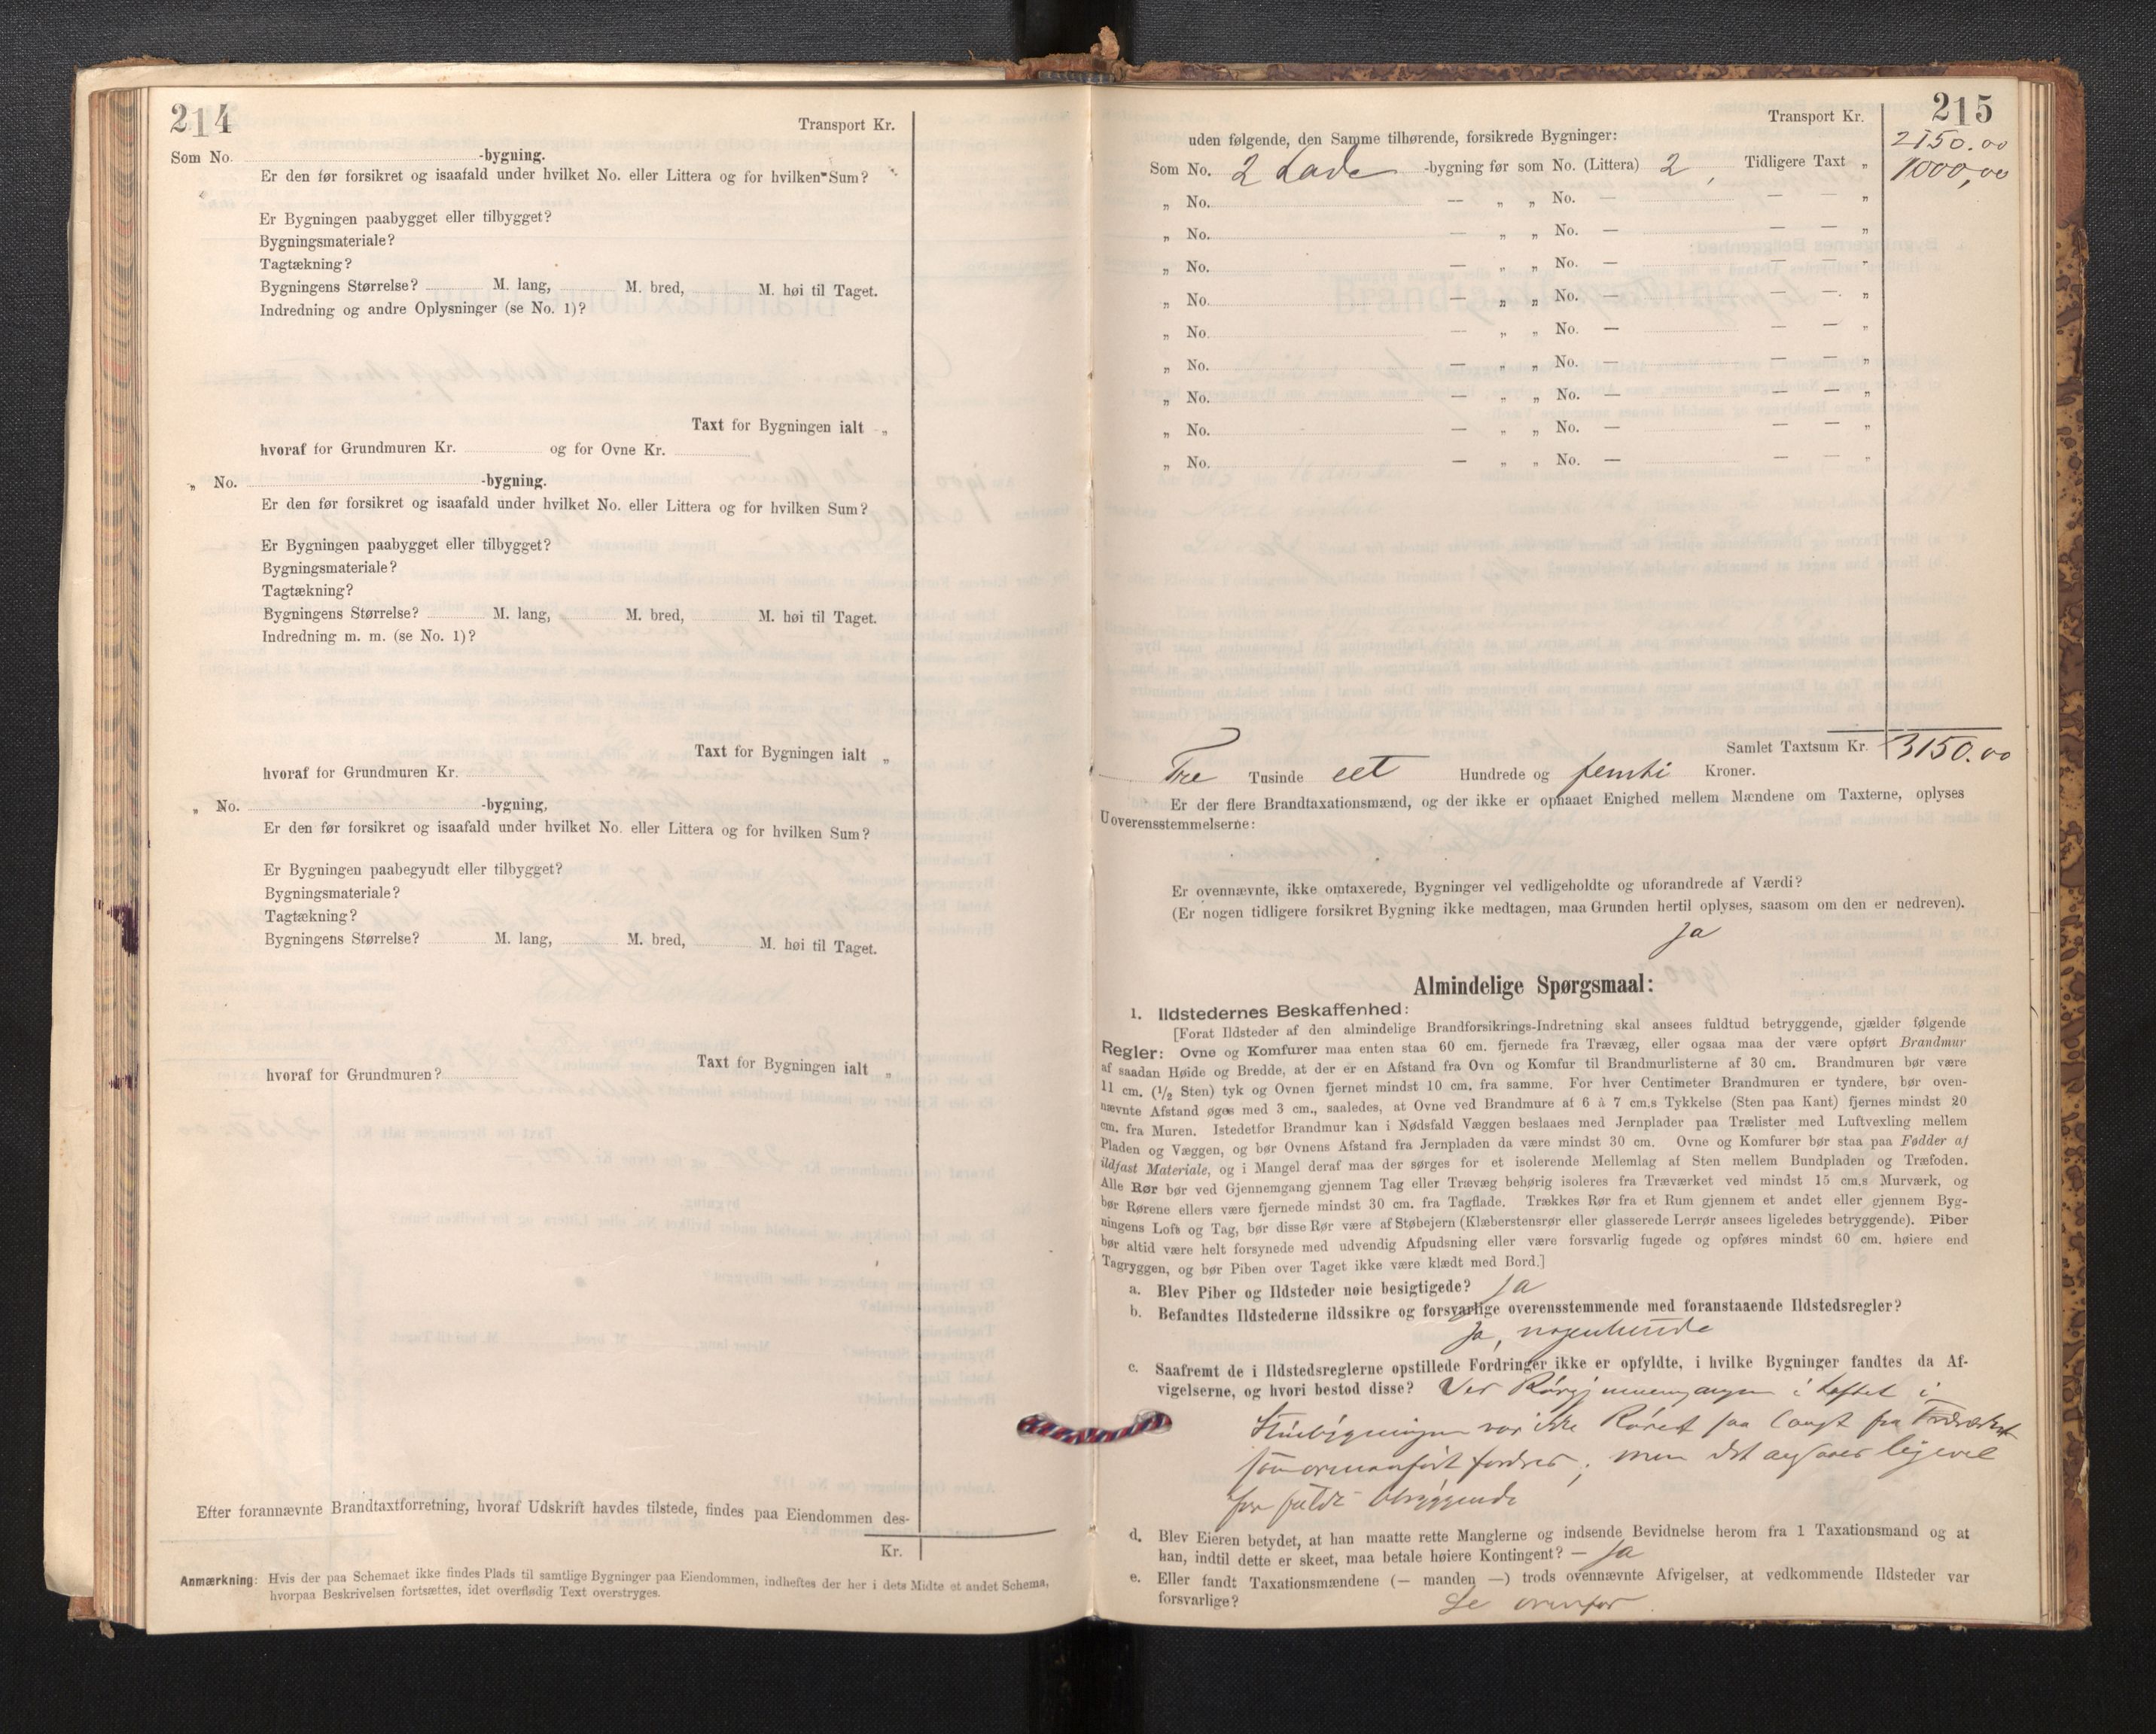 214
Transport Kr.
Som No. -bygning.
Er den før forsikret og isaafald under hvilket No. eller Littera og for hvilken Sum?
Er Bygningen paabygget eller tilbygget?
Bygningsmateriale?
Tagtækning?
Bygningens Størrelse? M. lang, M. bred, M. høi til Taget.
Indredning og andre Oplysninger (se No. 1)?
Taxt for Bygningen ialt „
hvoraf for Grundmuren Kr. og for Ovne Kr.
„ No. -bygning.
Er den før forsikret og isaafald under hvilket No. eller Littera og for hvilken Sum?
Er Bygningen paabygget eller tilbygget?
Bygningsmateriale?
Tagtækning?
Bygningens Størrelse? M. lang, M. bred, M. høi til Taget.
Indredning m. m. (se No. 1)?
Taxt for Bygningen ialt „
hvoraf for Grundmuren Kr.
„ No. -bygning,
Er den før forsikret og isaafald under hvilket No. eller Littera og for hvilken Sum?
Er Bygningen paabegyndt eller tilbygget?
Bygningsmateriale?
Tagtækning?
Bygningens Størrelse? M. lang, M. bred, M. høi til Taget.
Taxt for Bygningen ialt „
hvoraf for Grundmuren?
Efter forannævnte Brandtaxtforretning, hvoraf Udskrift havdes tilstede, findes paa Eiendommen des-
Kr.
Anmærkning: Hvis der paa Schemaet ikke findes Plads til samtlige Bygninger paa Eiendommen, indheftes der her i dets Midte et andet Schema,
hvorpaa Beskrivelsen fortsættes, idet overflødig Text overstryges.
215
Transport Kr. 2150.00
uden følgende, den Samme tilhørende, forsikrede Bygninger:
Som No. 2 Lade -bygning før som No. (Littera) 2, Tidligere Taxt „ 1000,00
„ No. — „ „ No. — — — „
„ No. — „ „ No. — — — „
„ No. — „ „ No. — — — „
„ No. — „ „ No. — — — „
„ No. — „ „ No. — — — „
„ No. — „ „ No. — — — „
„ No. — „ „ No. — — — „
„ No. — „ „ No. — — — „
„ No. — „ „ No. — — — „
Samlet Taxtsum Kr. 3150.00
Tre Tusinde eet Hundrede og femti Kroner.
Er der flere Brandtaxationsmænd, og der ikke er opnaaet Enighed mellem Mændene om Taxterne, oplyses
Uoverensstemmelserne:
Er ovennævnte, ikke omtaxerede, Bygninger vel vedligeholdte og uforandrede af Værdi?
(Er nogen tidligere forsikret Bygning ikke medtagen, maa Grunden hertil oplyses, saasom om den er nedreven).
Ja
Almindelige Spørgsmaal:
1. Ildstedernes Beskaffenhed:
[Forat Ildsteder af den almindelige Brandforsikrings-Indretning skal ansees fuldtud betryggende, gjælder følgende
Regler: Ovne og Komfurer maa enten staa 60 cm. fjernede fra Trævæg, eller ogsaa maa der være opført Brandmur
af saadan Høide og Bredde, at der er en Afstand fra Ovn og Komfur til Brandmurlisterne af 30 cm. Brandmuren bør være
11 cm. (1/2 Sten) tyk og Ovnen fjernet mindst 10 cm. fra samme. For hver Centimeter Brandmuren er tyndere, bør oven-
nævnte Afstand øges med 3 cm., saaledes, at Ovne ved Brandmure af 6 à 7 cm.s Tykkelse (Sten paa Kant) fjernes mindst 20
cm. fra Muren. Istedetfor Brandmur kan i Nødsfald Væggen beslaaes med Jernplader paa Trælister med Luftvexling mellem
Pladen og Væggen, og bør Ovnens Afstand fra Jernpladen da være mindst 30 cm. Ovne og Komfurer bør staa paa Fødder af
ildfast Materiale, og i Mangel deraf maa der sørges for et isolerende Mellemlag af Sten mellem Bundpladen og Træfoden.
Alle Rør bør ved Gjennemgang gjennem Tag eller Trævæg behørig isoleres fra Træværket ved mindst 15 cm.s Murværk, og
bør Rørene ellers være fjernede mindst 30 cm. fra Tagflade. Trækkes Rør fra et Rum gjennem et andet eller gjennem Byg-
ningens Loft og Tag, bør disse Rør være af Støbejern (Klæberstensrør eller glasserede Lerrør ansees ligeledes betryggende). Piber
bør altid være helt forsynede med udvendig Afpudsning eller være forsvarlig fugede og opføres mindst 60 cm. høiere end
Tagryggen, og bør Piben over Taget ikke være klædt med Bord.]
a. Blev Piber og Ildsteder nøie besigtigede? Ja
b. Befandtes Ildstederne ildssikre og forsvarlige overensstemmende med foranstaaende Ildstedsregler?
Ja, nogenlunde
c. Saafremt de i Ildstedsreglerne opstillede Fordringer ikke er opfyldte, i hvilke Bygninger fandtes da Af-
vigelserne, og hvori bestod disse? Ved Rørgjennemgangen i Loftet i
Stuebygningen var ikke Røret saa langt fra Træværket
som ovenanført fordres, men det ansaaes ligevel
for fuldt betryggende
d. Blev Eieren betydet, at han maatte rette Manglerne og indsende Bevidnelse herom fra 1 Taxationsmand og at
han, indtil dette er skeet, maa betale høiere Kontingent? — Ja
e. Eller fandt Taxationsmændene (— manden —) trods ovennævnte Afvigelser, at vedkommende Ildsteder var
forsvarlige? Se ovenfor.